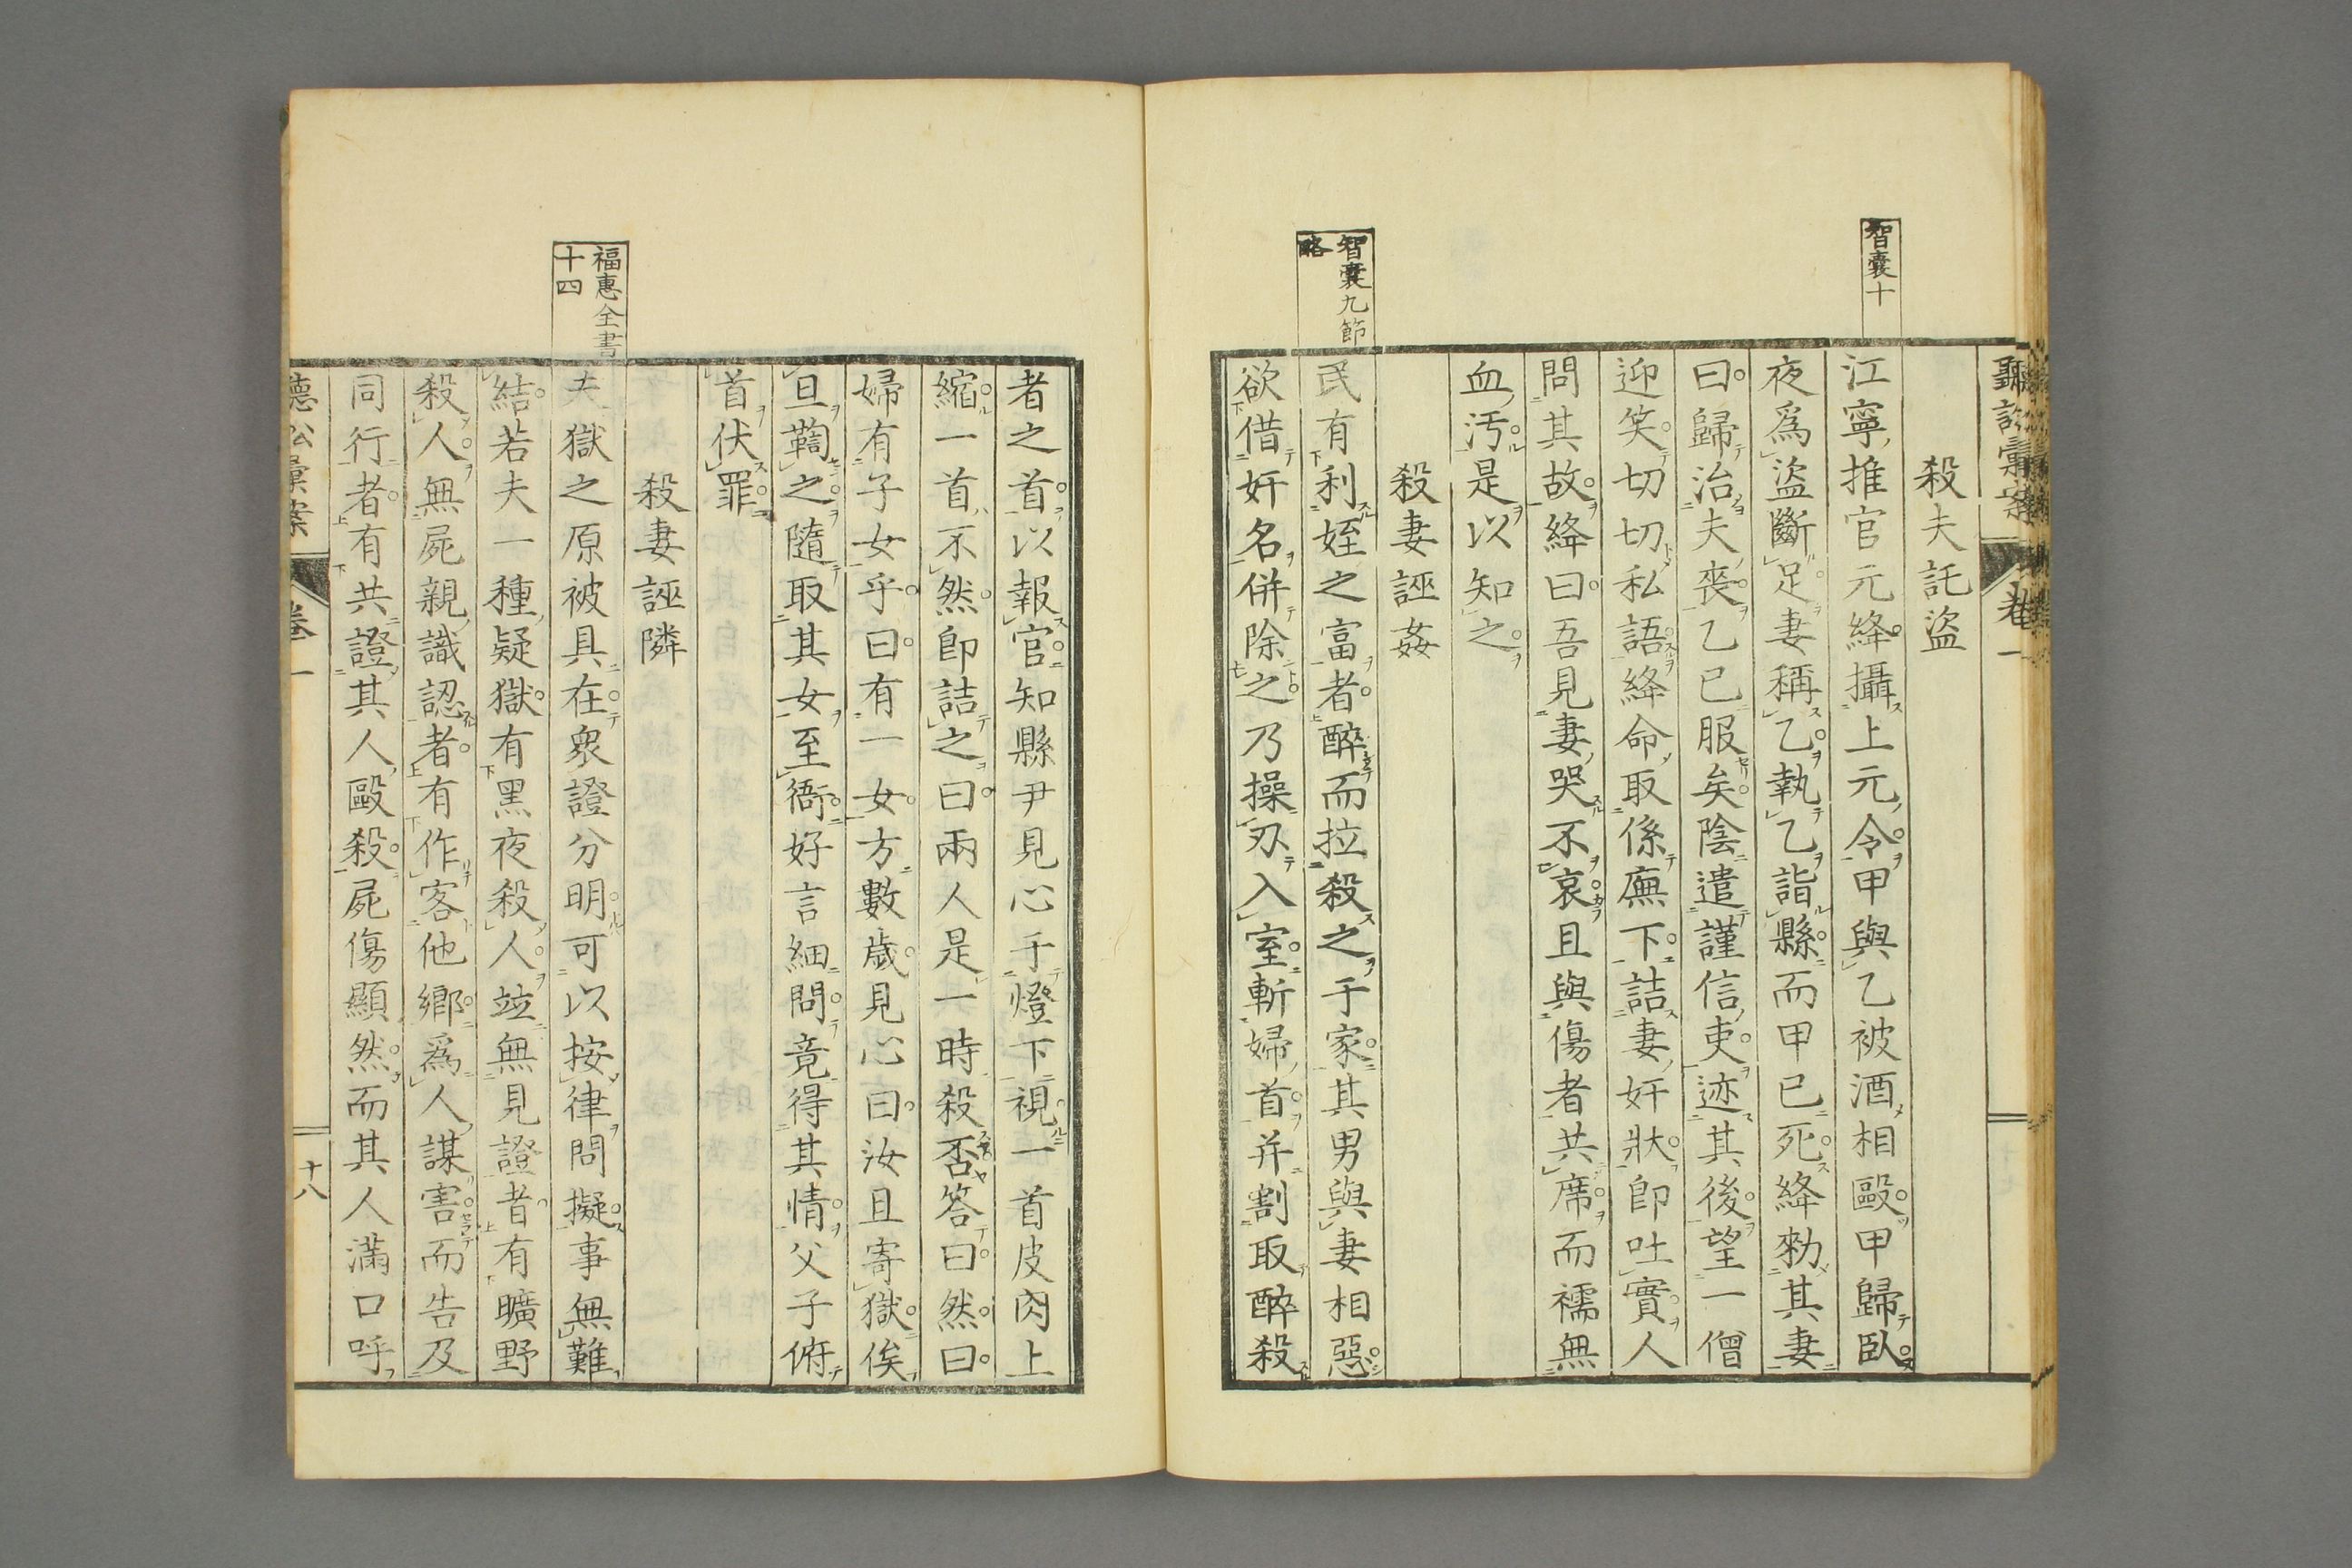 智囊十
智囊九節
略
聽訟彙案
卷一
殺夫託盜
江寧推官元絳攝上元令甲與乙被酒相毆甲歸臥
夜爲盜斷足妻稱乙執乙詣縣而甲已死絳勑其妻
曰歸治夫喪乙已服矣陰遣謹信吏迹其後望一僧
迎笑切切私語絳命取係廡下詰妻奸狀卽吐實人
問其故絳曰吾見妻哭不哀且與傷者共席而襦無
血汚是以知之
殺妻誣姦
民有利姪之富者醉而拉殺之于家其男與妻相惡
欲借奸名併除之乃操刃入室斬婦首并割取醉殺
福惠全書
十四
者之首以報官知縣尹見心于燈下視一首皮肉上
縮一首不然卽詰之曰兩人是一時殺否答曰然曰
婦有子女乎曰有一女方數歲見心曰汝且寄獄俟
旦鞫之隨取其女至衙好言細問竟得其情父子俯
首伏罪
殺妻誣隣
夫獄之原被具在衆證分明可以按律問擬事無難
結若夫一種疑獄有黑夜殺人竝無見證者有曠野
殺人無屍親識認者有作客他鄉爲人謀害而告及
同行者有共證其人毆殺屍傷顯然而其人滿口呼
聽訟彙案
卷一
十八